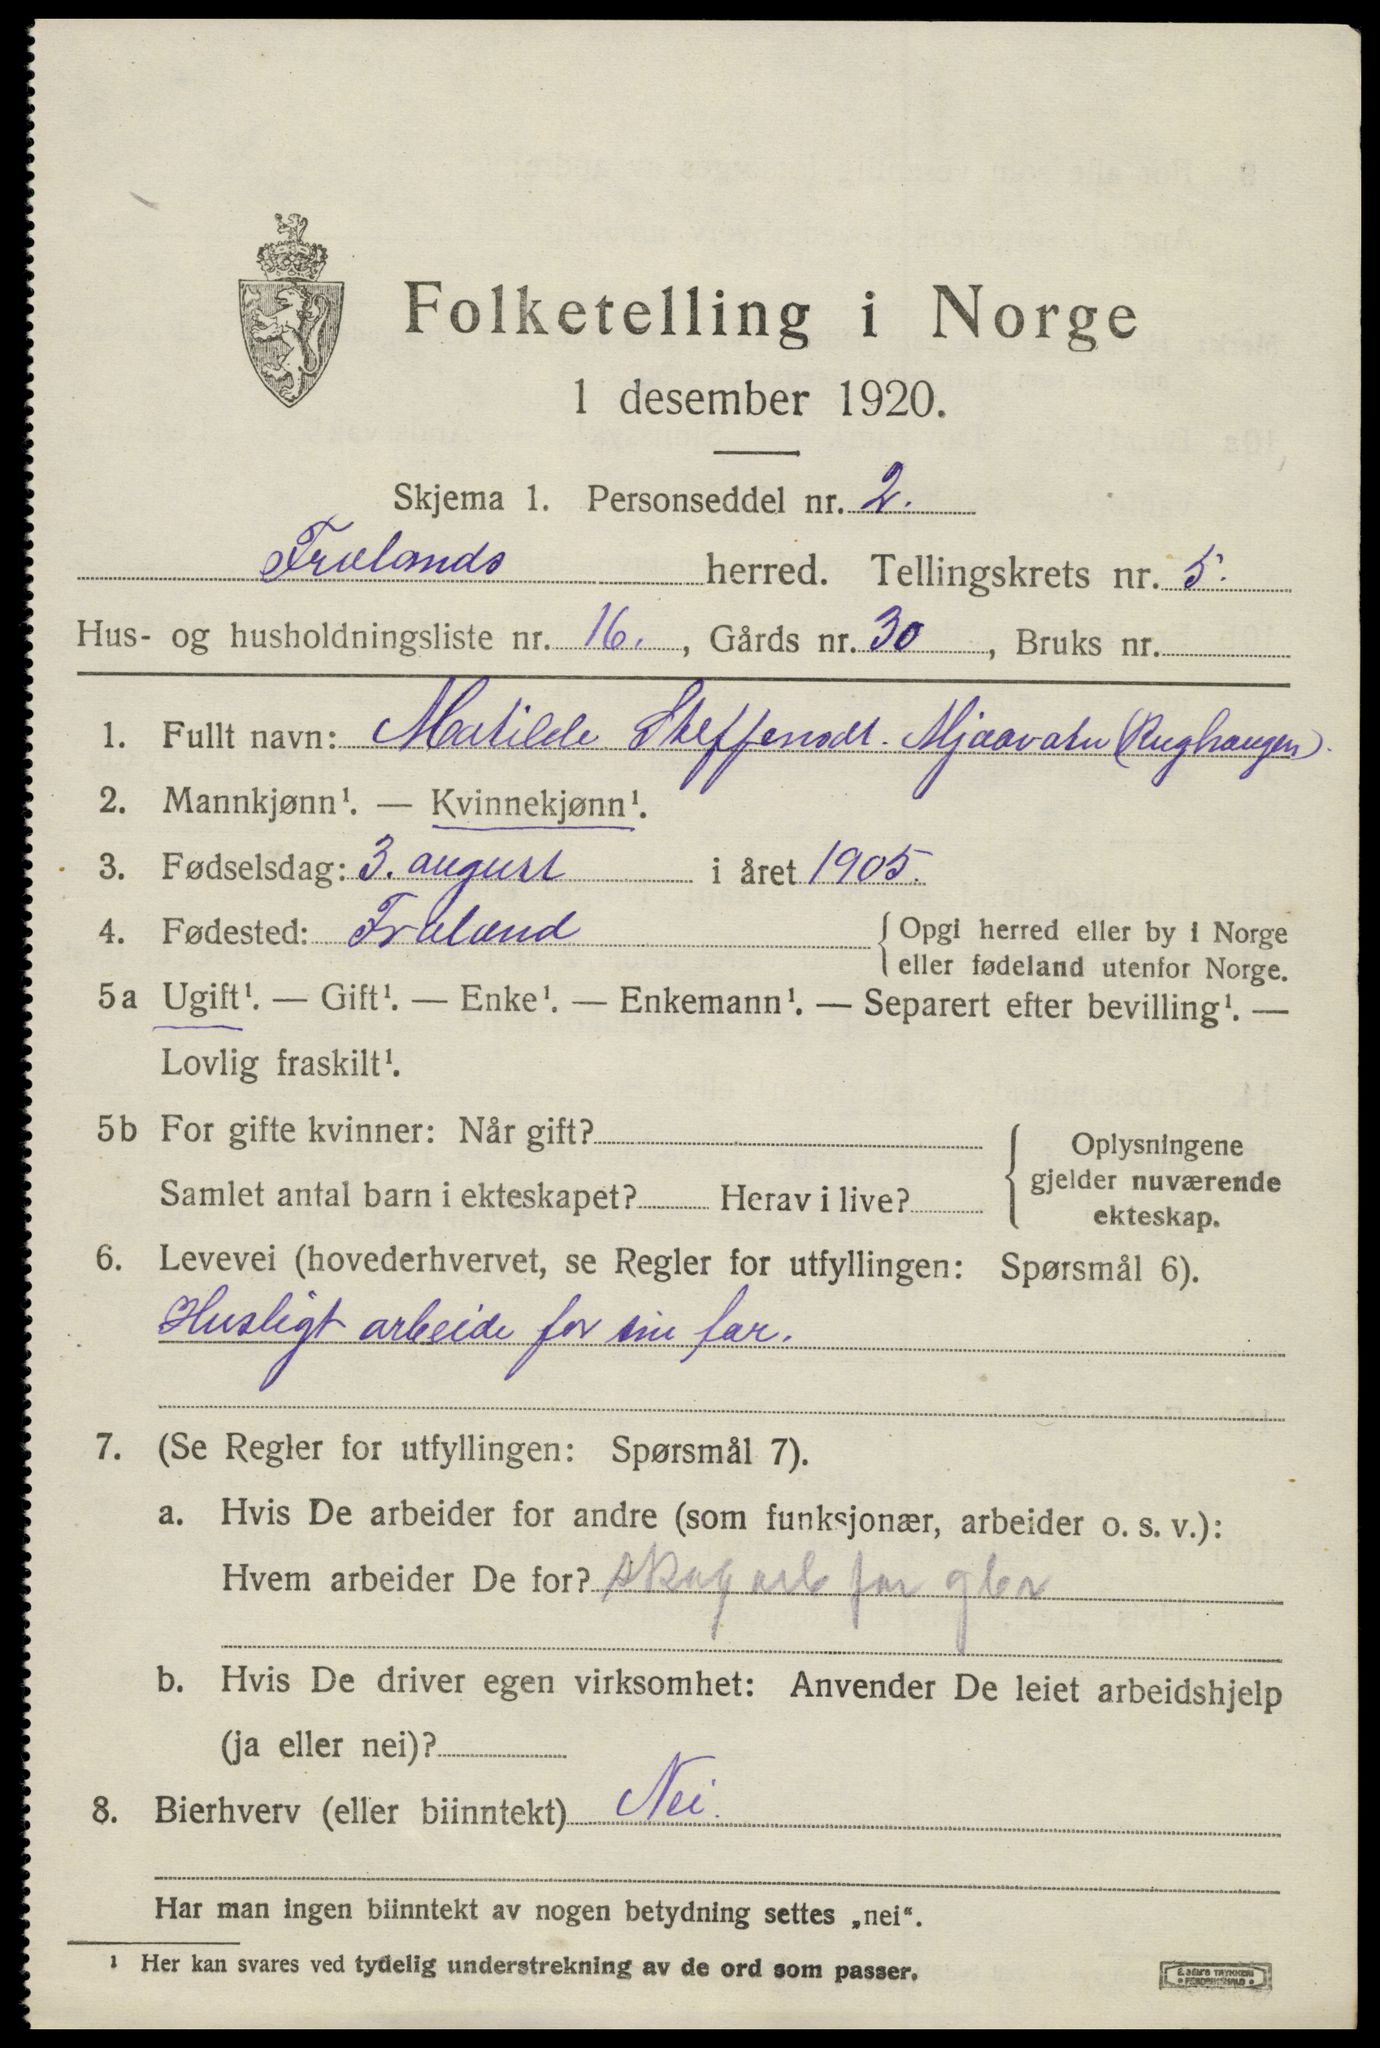 Folketelling i Norge
1 desember 1920.
Skjema 1. Personseddel nr. 2.
Frolands herred. Tellingskrets nr. 5.
Hus- og husholdningsliste nr. 16., Gårds nr. 30, Bruks nr.
1. Fullt navn: Matilde Steffensdt. Mjaavatn (Rughaugen).
2. Mannkjønn¹. — Kvinnekjønn¹.
3. Fødselsdag: 3. august i året 1905.
4. Fødested: Froland { Opgi herred eller by i Norge
eller fødeland utenfor Norge.
5a Ugift¹. — Gift¹. — Enke¹. — Enkemann¹. — Separert efter bevilling¹. —
Lovlig fraskilt¹.
5b For gifte kvinner: Når gift?
Samlet antal barn i ekteskapet? Herav i live?
{ Oplysningene
gjelder nuværende
ekteskap.
6. Levevei (hovederhvervet, se Regler for utfyllingen: Spørsmål 6).
Husligt arbeide for sin far.
7. (Se Regler for utfyllingen: Spørsmål 7).
a. Hvis De arbeider for andre (som funksjonær, arbeider o. s. v.):
Hvem arbeider De for? skog arb for
b. Hvis De driver egen virksomhet: Anvender De leiet arbeidshjelp
(ja eller nei)?
8. Bierhverv (eller biinntekt) Nei.
Har man ingen biinntekt av nogen betydning settes „nei“.
¹ Her kan svares ved tydelig understrekning av de ord som passer.